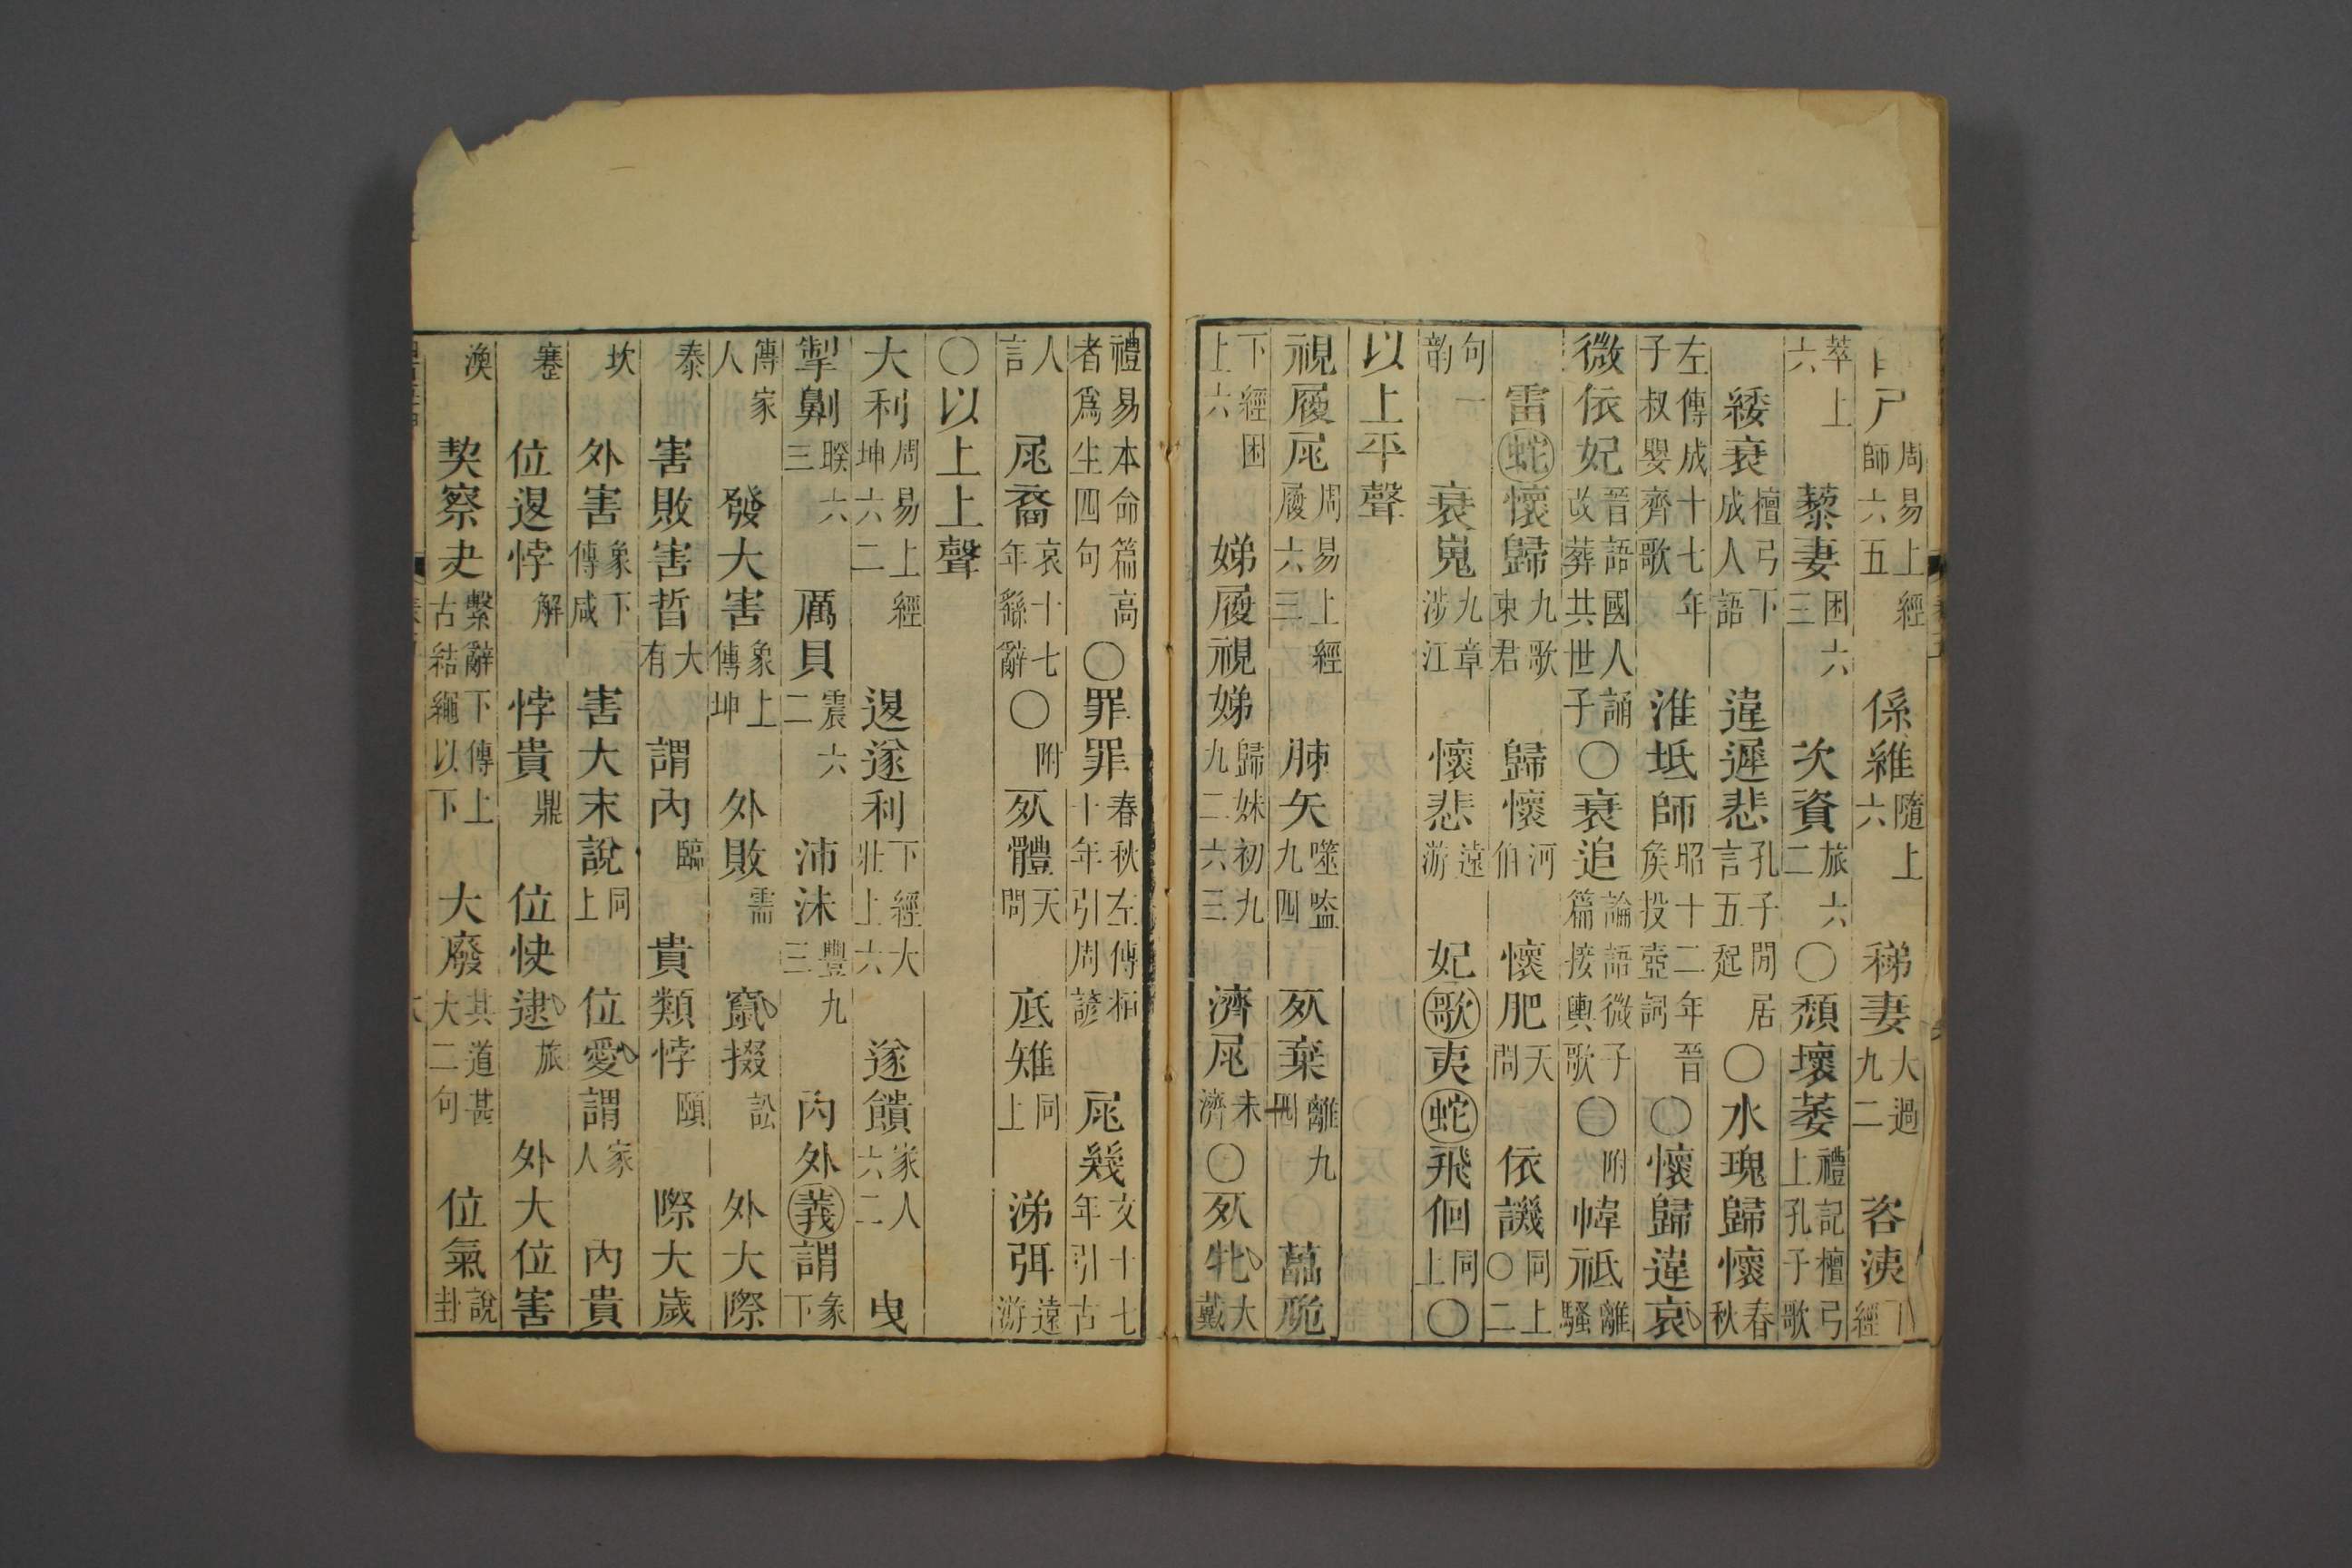 尸周易上經師六五　係維隨上六　稊妻大過九二　咨洟下經
萃上六　藜妻困六三　次資旅六二〇頹壞萎禮記檀弓上孔子歌
綏衰檀弓下成人語　違遲悲孔子閒居言五起〇水瑰歸懷春秋
左傳成十七年子叔嬰齊歌　淮坻師昭十二年晉矦投壺詞〇懷歸違哀
微依妃晉語國人誦改葬共世子〇衰追論語微子篇接輿歌〇附幃祗離騷
雷蛇懷歸九歌東君　歸懷河伯　懷肥天問　依譏同上〇二
句一韵　衰嵬九章涉江　懷悲遠游　妃歌夷蛇飛佪同上〇
以上平聲
視履𡲵周易上經履六三　胏矢噬嗑九四　𣦸棄離九四　藟臲
下經困上六　娣履視娣歸妹初九九二六三　濟𡲵未濟〇𣦸牝大戴
禮易本命篇高者爲生四句〇罪罪春秋左傳桓十年引周諺　𡲵幾文十七年引古
人言　𡲵裔哀十七年繇辭〇附𣦸體天問　底雉同上　涕弭遠游
〇以上上聲
大利周易上經坤六二　退遂利下經大壯上六　遂饋家人六二　曳
掣劓睽六三　厲貝震六二　沛沬豐九三　內外義謂彖下
傳家人　發大害象上傳坤　外敗需　竄掇訟　外大際
泰　害敗害晢大有　謂內臨　貴類悖頤　際大歲
坎　外害象下傳咸　害大末說同上　位愛謂家人　內貴
蹇　位退悖解　悖貴鼎　位快逮旅　外大位害
渙　契察史繫辭下傳上古結繩以下　大廢其道甚大二句　位氣說卦